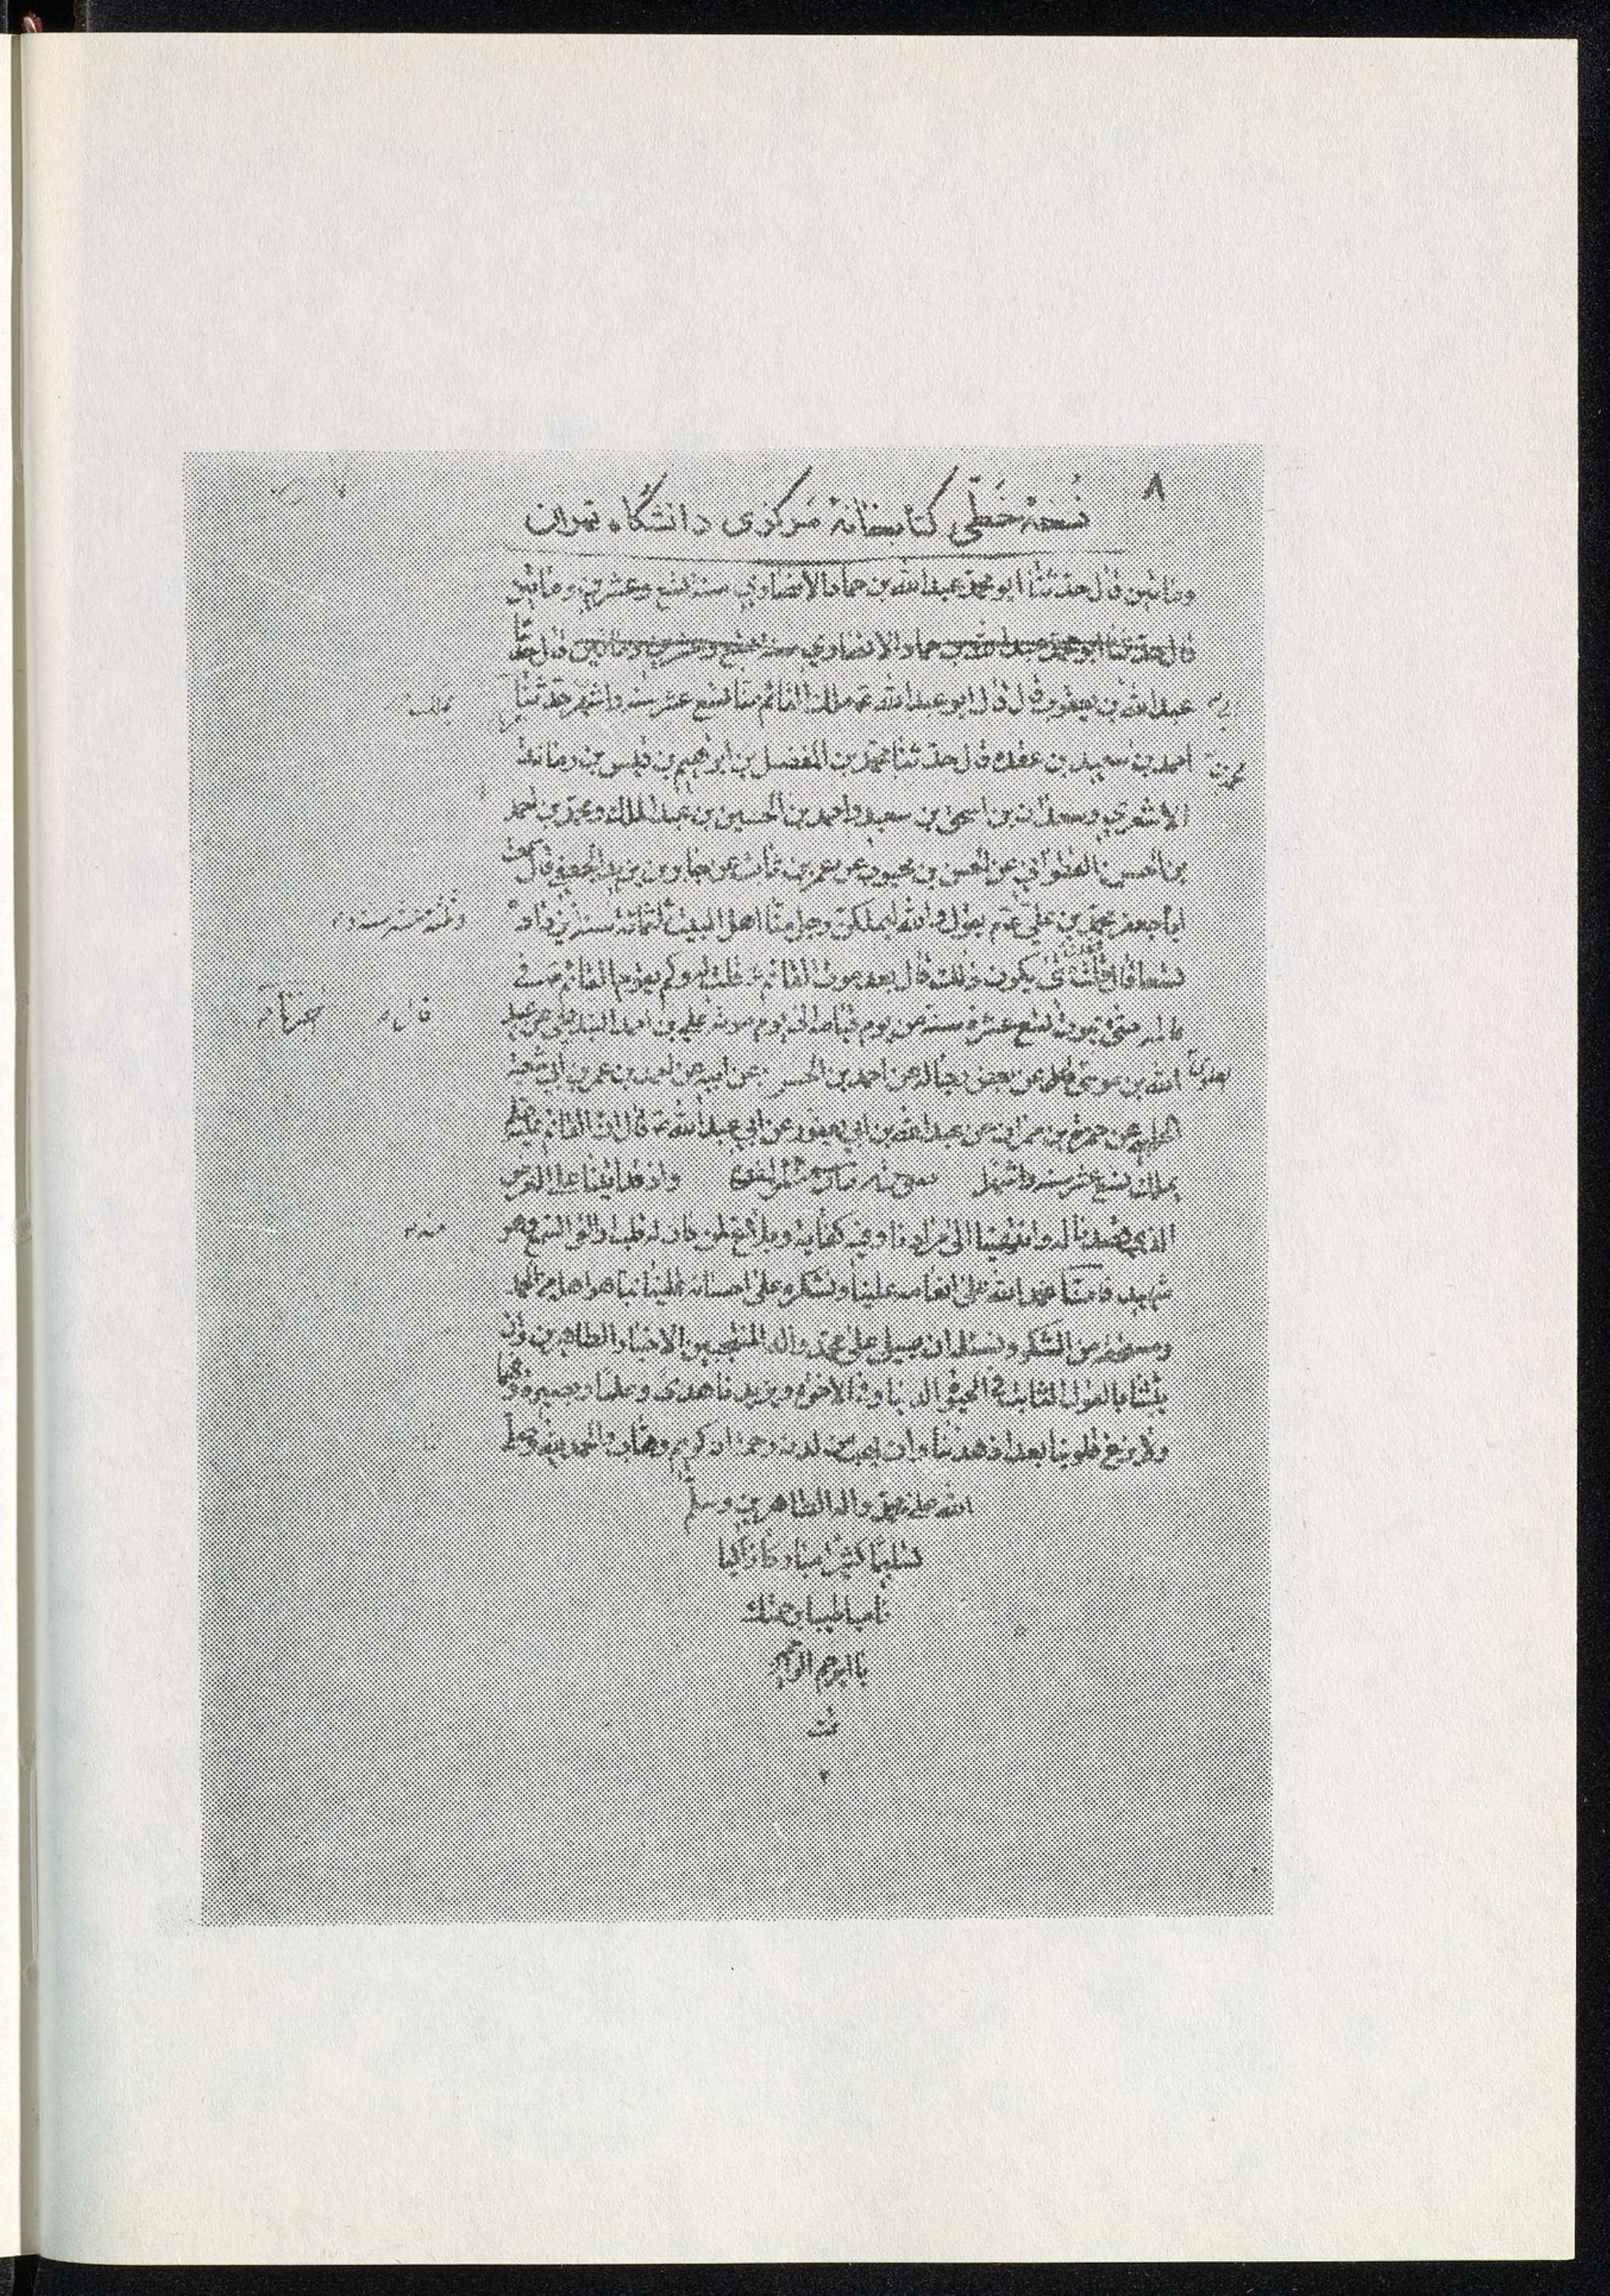 ٨
نسخهٔ خطّی کتابخانهٔ مرکزی دانشگاه تهران
ومائتين قال حدثنا ابو محمد عبدالله بن حماد الانصاري سنه تسع وعشرين ومائتين
قال حدثنا ابو محمد عبدالله بن حماد الانصاري سنه تسع وعشرين ومائتين قال حدثنا
عبدالله بن يعفور قال قال ابو عبدالله ع يملك القائم منا تسع عشر سنه واشهر حدثنا
احمد بن سعيد بن عقده قال حدثنا محمد بن المفضل بن ابراهيم بن قيس بن رمانه
الاشعري وسعدان بن اسحق بن سعيد واحمد بن الحسين بن عبدالملك ومحمد بن احمد
بن الحسن القطواني عن الحسن بن محبوب عن عمر بن ثابت عن جابر بن يزيد الجعفي قال سمعت
ابا جعفر محمد بن علي ع يقول والله ليملكن رجل منا اهل البيت ثلثمائة سنه
تسعا قال قلت متى يكون ذلك قال بعد موت القائم ع قلت له وكم يقوم القائم ع في
عالمه حتى يموت تسع عشرة سنة من يوم قيامه الى يوم موته علي بن احمد البندنيجي عن عبيد
الله بن موسى عن بعض رجاله عن احمد بن الحسن عن ابيه عن احمد بن عمر بن ابي شعبه
الحلبي عن حمزة بن حمران عن عبدالله بن ابي يعفور عن ابي عبدالله ع قال ان القائم
يملك تسع عشر سنه واشهرا واذ قد اتينا على الغرض
الذي قصدنا له وانتهينا الى مرادنا وفيه كفاية وبلاغ لمن كان له قلب او القى السمع وهو
شهيد فانا نحمد الله على انعامه علينا ونشكره على احسانه الينا بما هو اهله من الحمد
ومستحقه من الشكر ونسئله ان يصلي على محمد وآله المنتجبين الاخيار الطاهرين وان
يثبتنا بالقول الثابت في الحيوة الدنيا وفي الاخرة ويزيدنا هدى وعلما وبصيرة وفهما
ولا يزغ قلوبنا بعد اذ هدينا وان يهب من لدنه رحمة انه كريم وهاب والحمد لله وصلى
الله على محمد وآله الطاهرين وسلم
تسليما كثيرا مباركا زاكيا
ناميا طيبا برحمتك
يا ارحم الراحمين
تمت